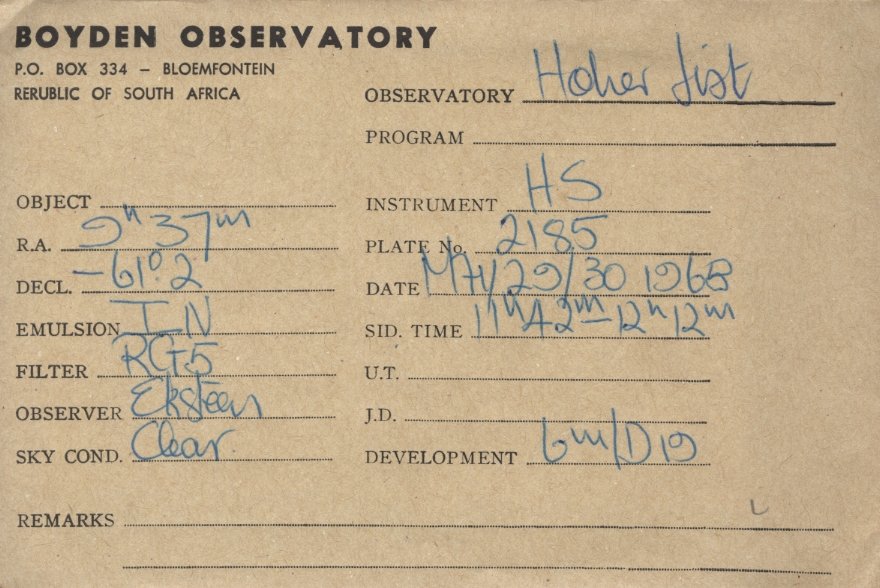 BOYDEN OBSERVATORY
P.O. BOX 334 – BLOEMFONTEIN
RERUBLIC OF SOUTH AFRICA
OBSERVATORY Hoher List
PROGRAM
OBJECT
R.A. 9h 37m
DECL. -61°.2
EMULSION I N
FILTER RG5
OBSERVER Eksteen
SKY COND. Clear.
INSTRUMENT HS
PLATE No. 2185
DATE MAY 29/30 1968
SID. TIME 11h42m–12h12m
U.T.
J.D.
DEVELOPMENT 6m/D19
REMARKS